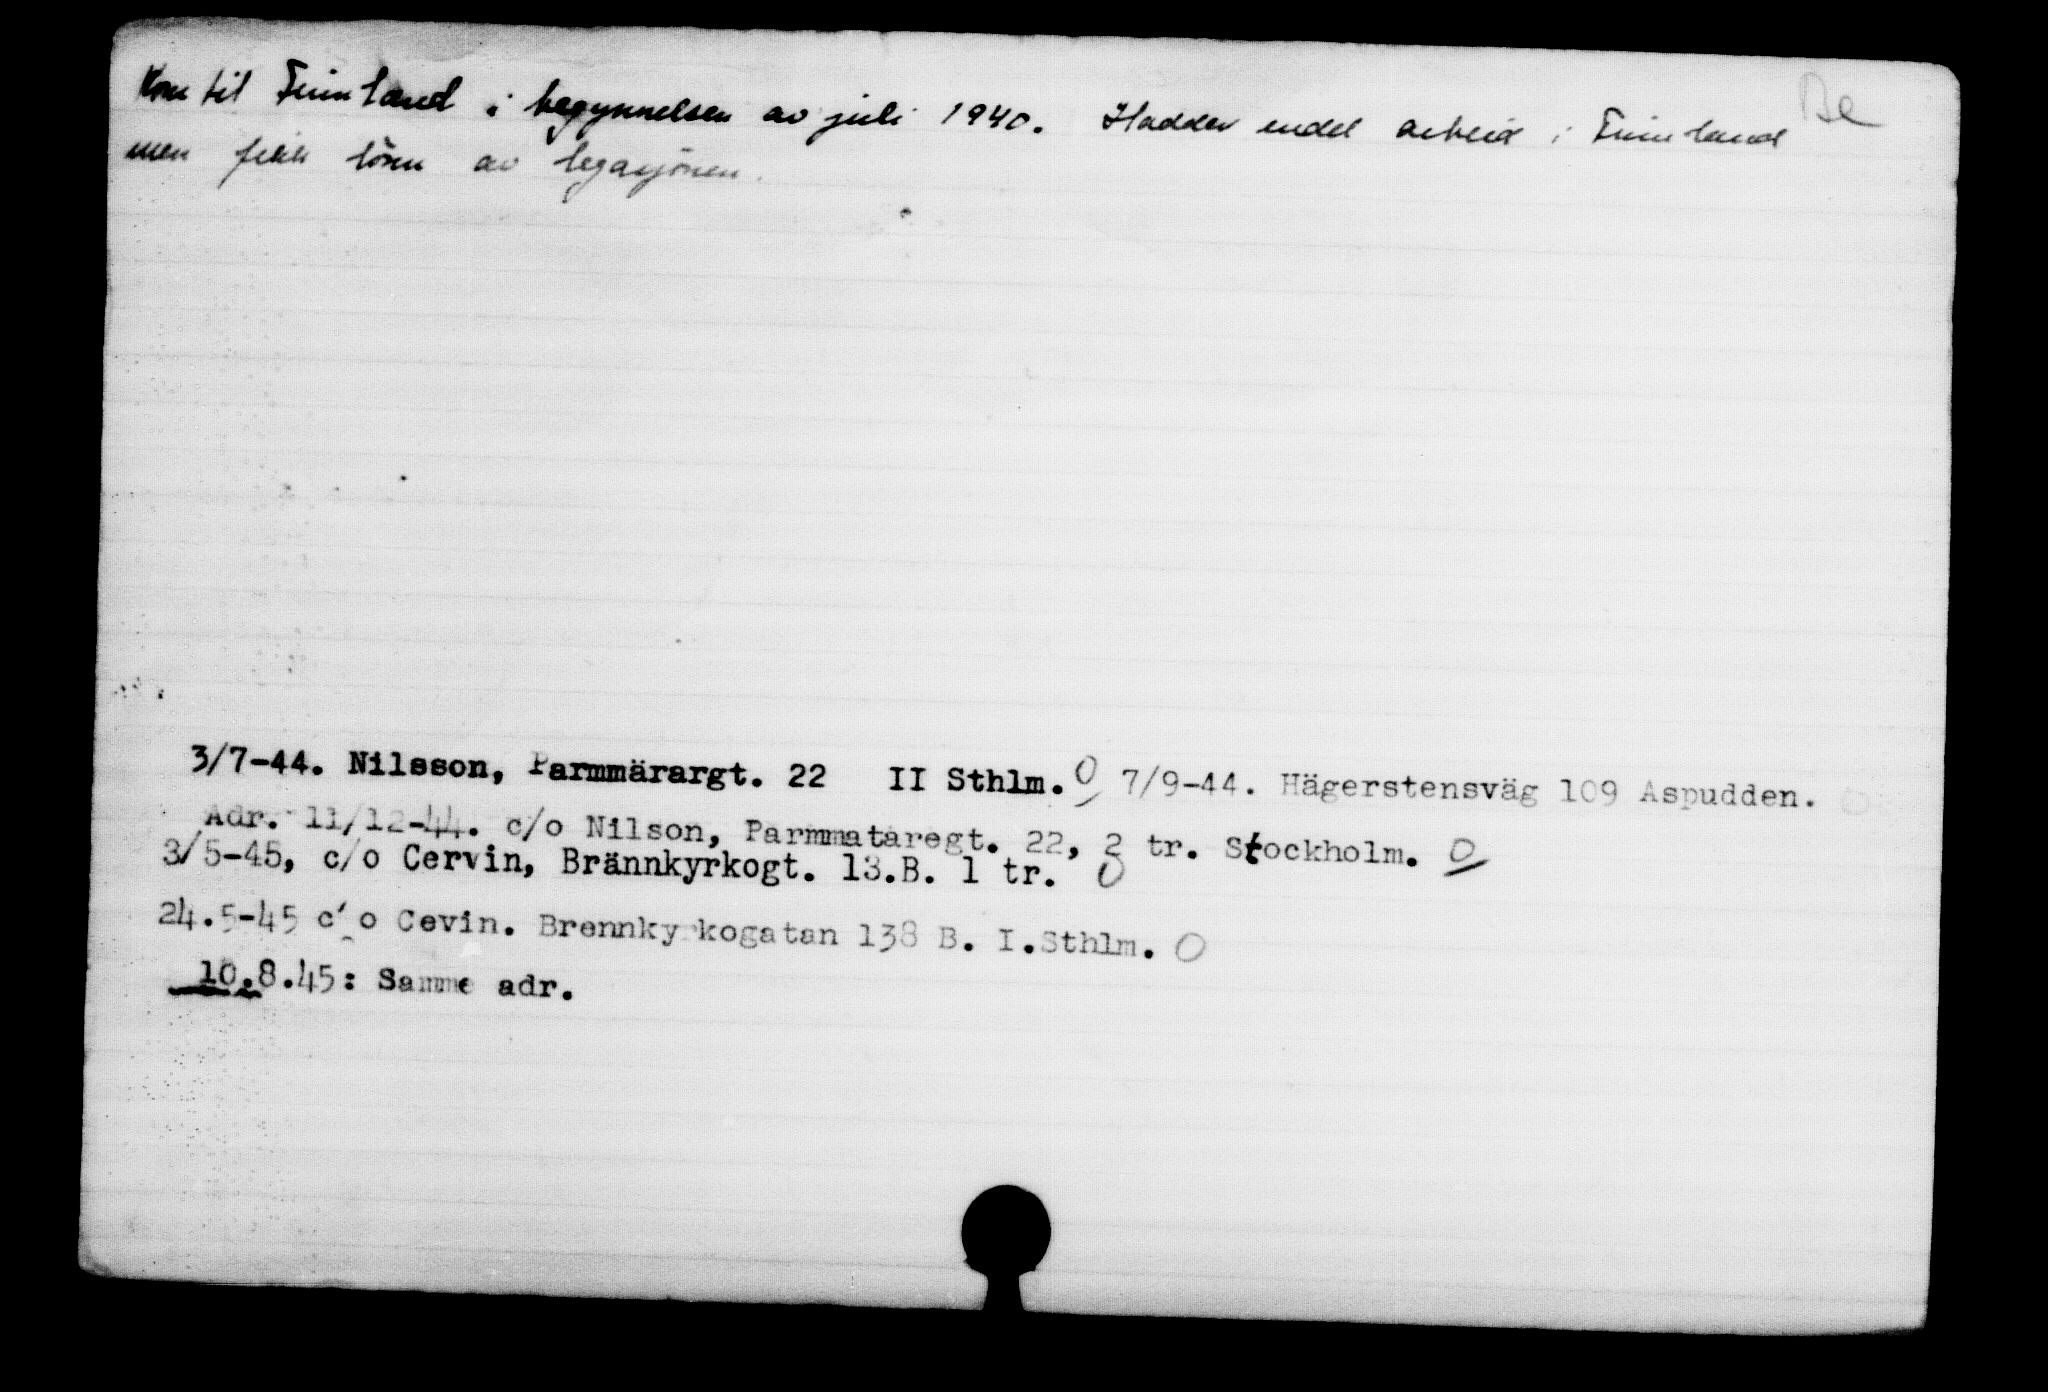 Be
Kom til Finnland i begynnelsen av juli 1940. Hadde endel arbeid i Finnland
men fikk lönn av legasjonen.
3/7-44. Nilsson, Parmmärargt. 22 II Sthlm. 0 7/9-44. Hägerstensväg 109 Aspudden. 0
Adr. 11/12-44. c/o Nilson, Parmmataregt. 22, 2 tr. Stockholm. 0
3/5-45, c/o Cervin, Brännkyrkogt. 13.B. 1 tr. 0
24.5-45 c/o Cevin. Brennkyrkogatan 138 B. I.Sthlm. 0
10.8.45: Samme adr.